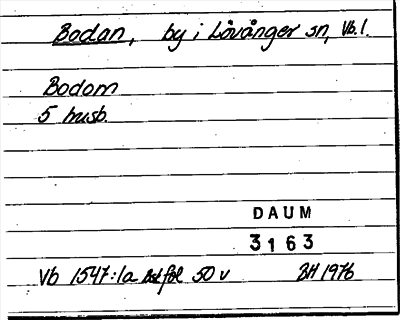 Bodan, by i Lövånger sn, Vb.l.
Bodom
5 husb.
DAUM
3163
Vb 1547:1a fol 50 v BH 1976